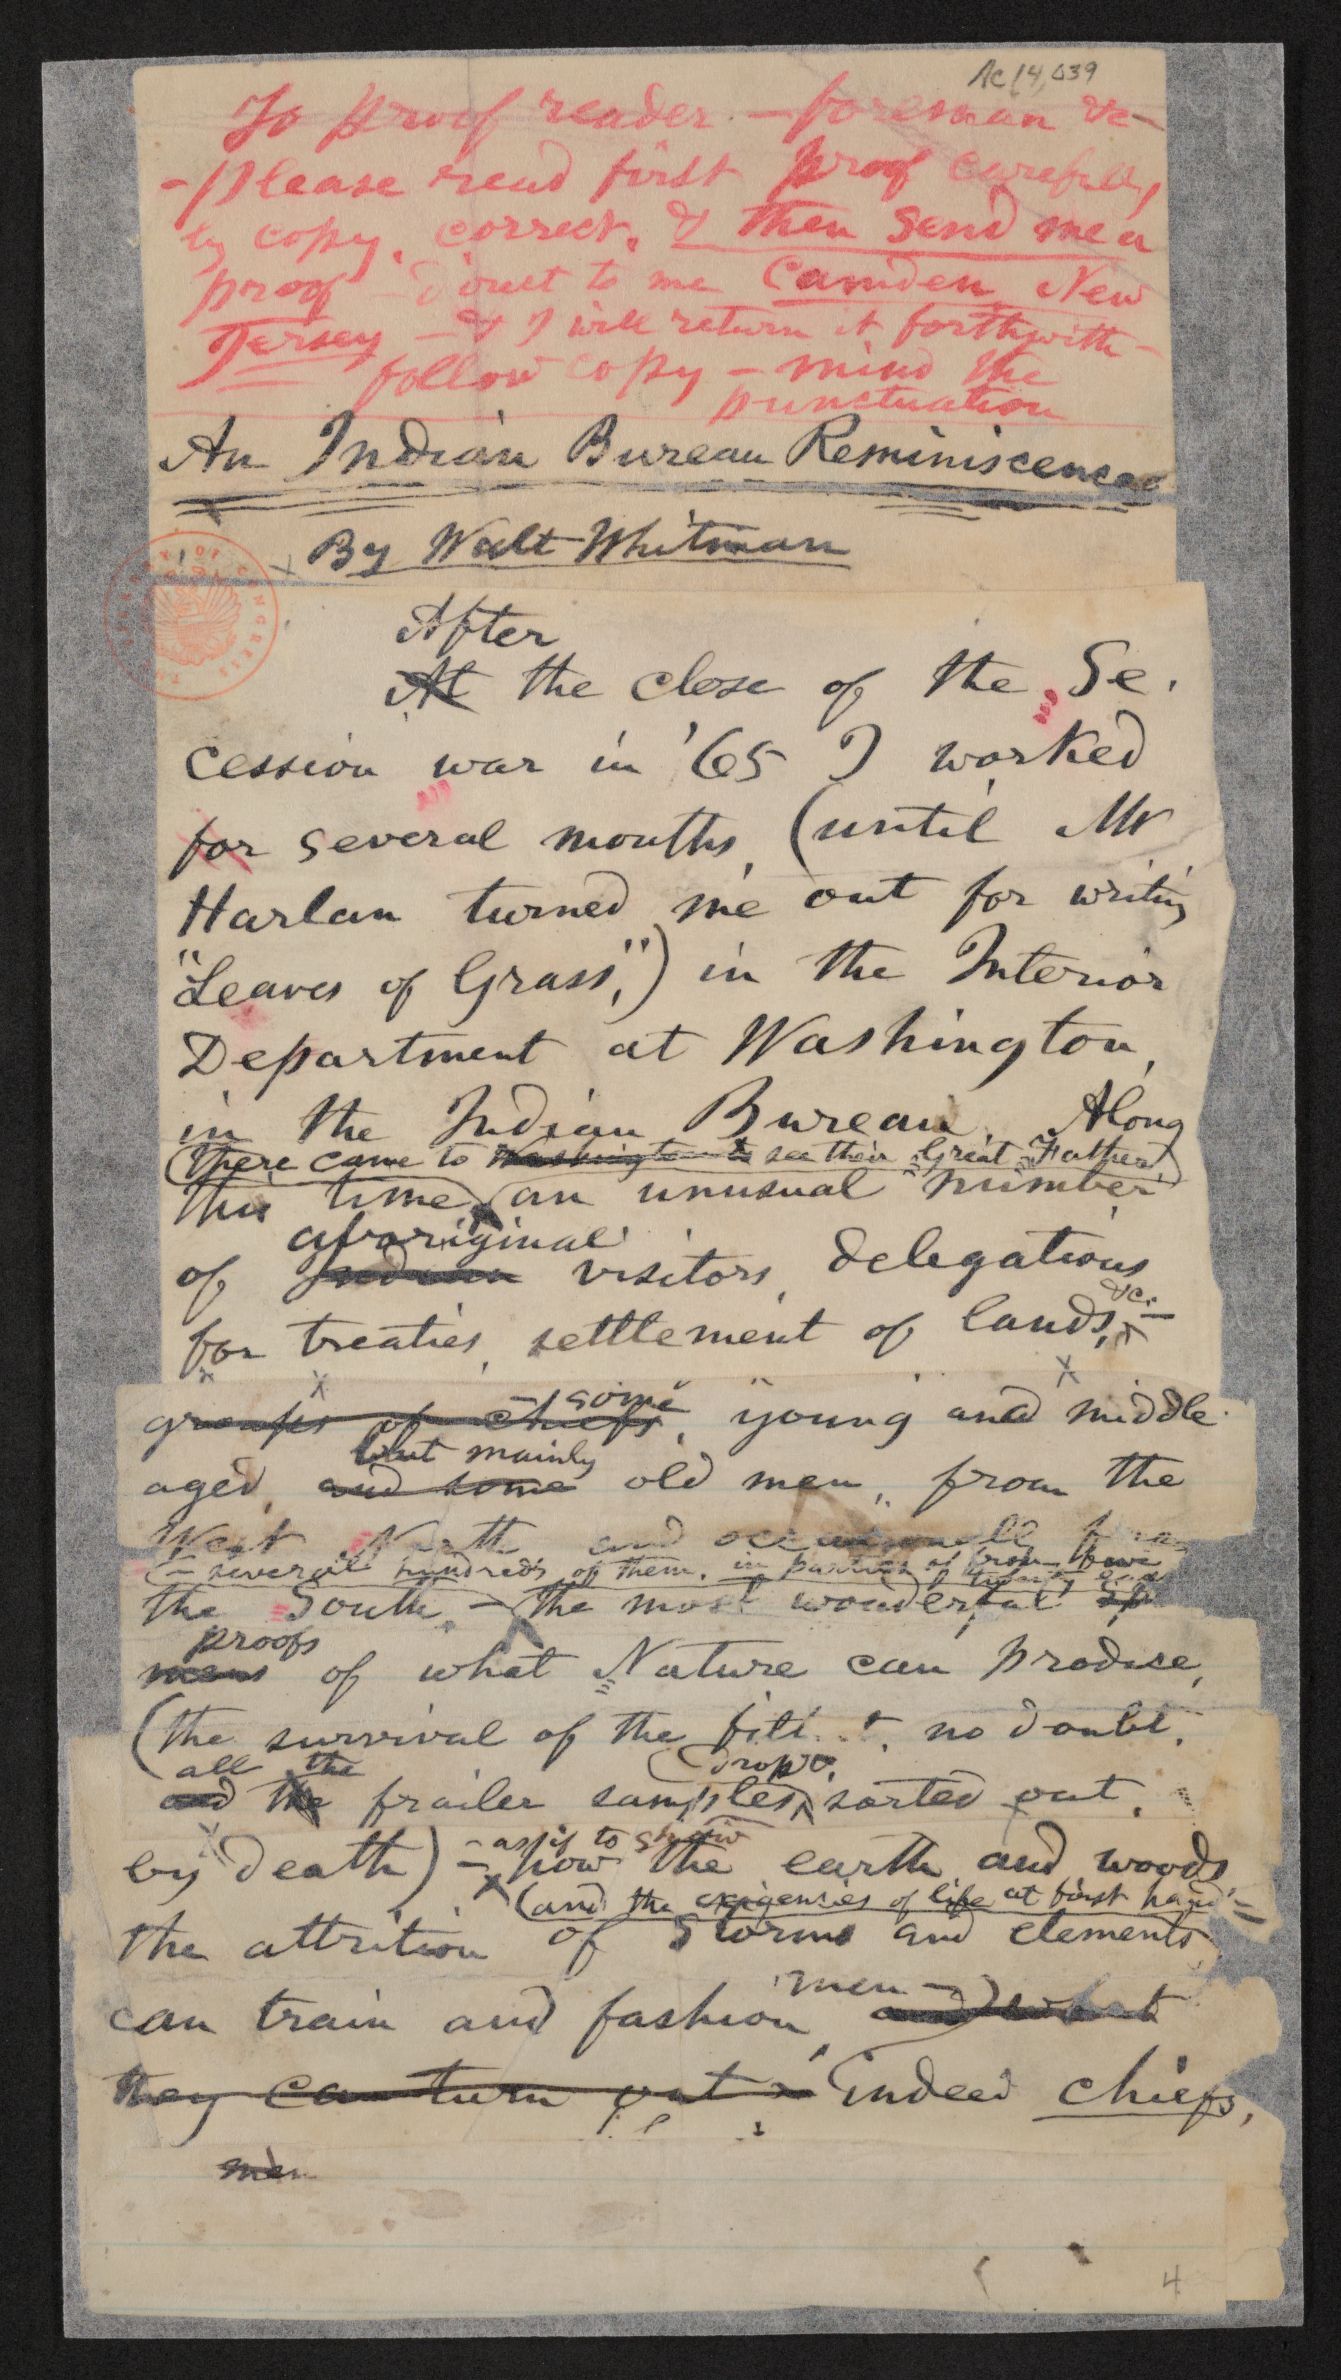 Ac 14,039
To proof reader - foreman &c -
- please read first proof carefully,
by copy, correct, & then send me a
proof - direct to me Camden New
Jersey - & I will return it forthwith -
follow copy - mind the
punctuation
An Indian Bureau Reminiscence
By Walt Whitman
After
At the close of the Se-
cession war in '65 I worked
for several months, (until Mr
Harlan turned me out for writing
"Leaves of Grass,") in the Interior
Department at Washington,
in the Indian Bureau. Along
(there came to Washington to see their Great Father)
this time an unusual number
aboriginal
of Indian visitors, delegations
&c. -
for treaties, settlement of lands,
- some
groups of chiefs, young and middle-
but mainly
aged, and some old men, from the
West North and occasionally from
(- several hundreds of them, in parties of from five
to twenty each
the South, - the most wonderful sp
proofs
mens of what Nature can produce,
(the survival of the no doubt,
all the dropt,
and the frailer samples sorted out,
by death) - as if to show how the earth and woods
(and the exigencies of life at first hand
the attrition of storms and elements
men -
can train and fashion, and what
they can turn out - indeed chiefs,
men
4